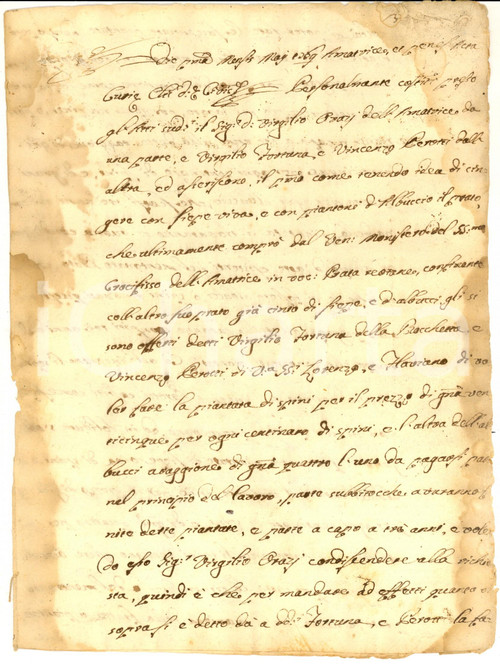 Die pma Mensis Maij 1769 Amatrice, et penes Acta
Curie
Personalmente costi.ti
gl'Atti il Sig.r D. Virgilio Orazj dell'Amatrice da
una parte, e Virgilio Fortuna, e Vincenzo Perotti dall'
altra, ed asseriscono, il pmo come tenendo idea di cin
gere con siepe viva, e con piantoni d'Albuccio il prato
che ultimamente comprò dal Ven: Monistero del SS.mo
Crocifisso dell'Amatrice in voc: Prata confinante
coll'altro suo prato già cinto di siepe, e d'albucci, gli si
sono offerti detti Virgilio Fortuna della Rocchetta e
Vincenzo Perotti di Lorenzo, e Flaviano di vo
ler fare la piantata di spini per il prezzo di ven
ticinque per ogni centinaro di spini, e l'altra dell'al
bucci a raggione di quattro l'uno da pagarsi par
nel principio del lavoro, parte subbitocche avaranno
nite dette piantate, e parte a capo a tre anni, e volen
do esso Sig.r Virgilio Orazj condiscendere alla richie
sta, quindi è che per mandare ad effetto quanto
sopra si è detto dà a dd.i Fortuna, e Perotti la fa